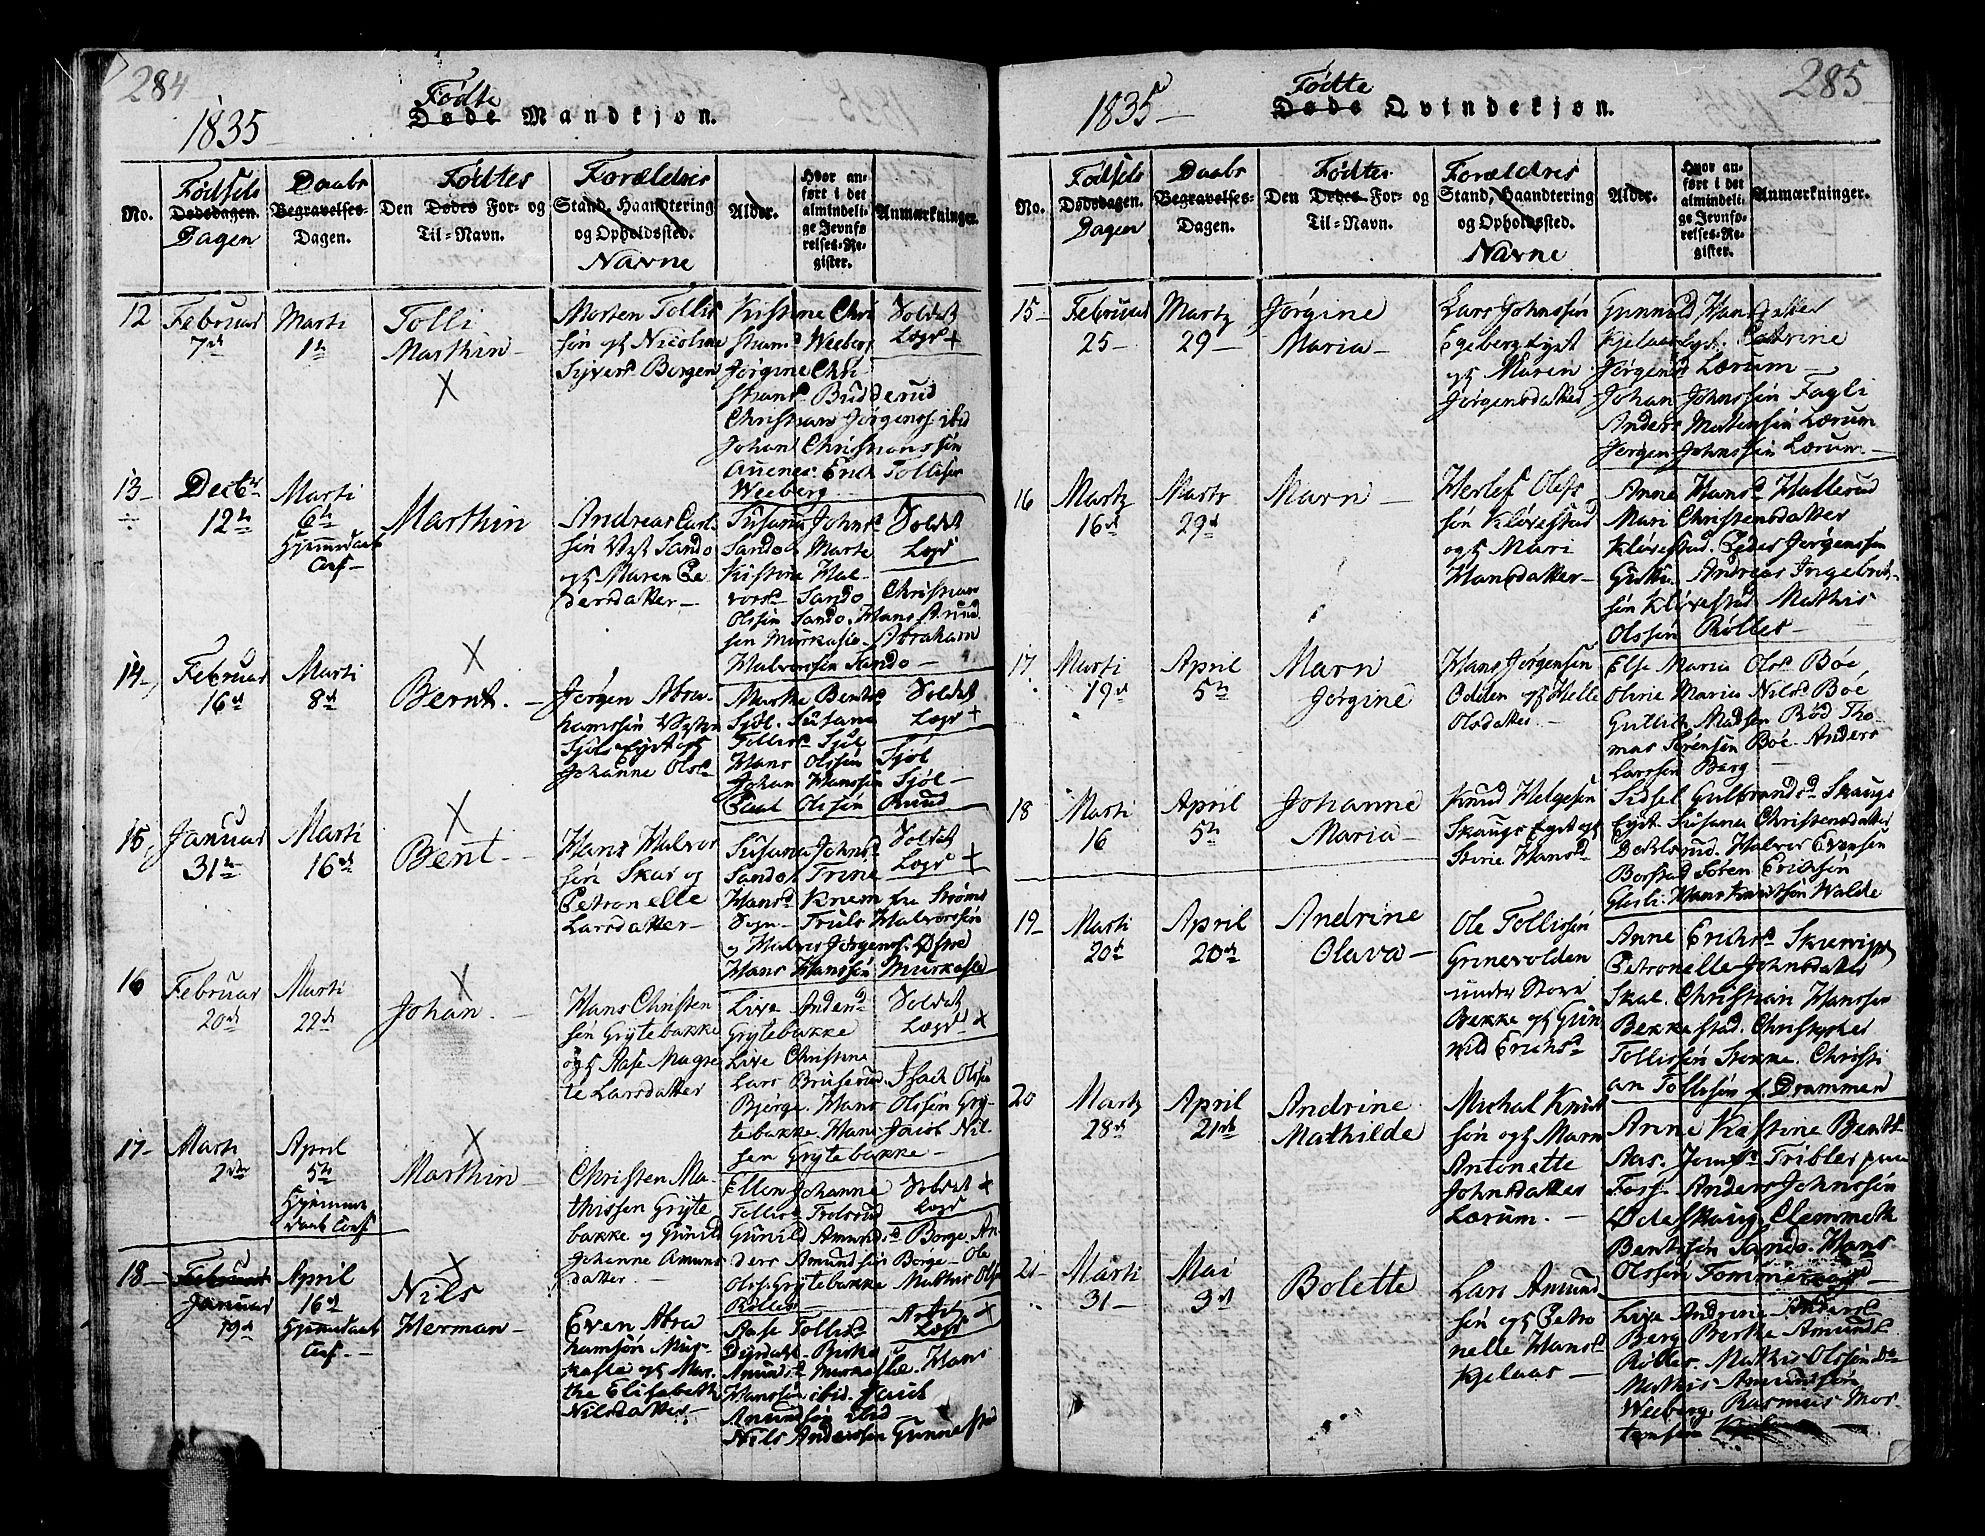 284
1835
Fødte
Døde Mandkjøn.
No.
Fødsels
Dødsdagen.
Dagen
Daabs
Begravelses-
Dagen.
Fødtes
Den Dødes For- og
Til-Navn.
Forældres
Stand, Haandtering
og Opholdssted.
Navne
Alder.
Hvor an-
ført i det
almindeli-
ge Jevnfø-
relses-Re-
gister.
Anmærkninger.
12
Februar
7de
Marti
1te
Tolli
Marthin
X
Morten Tollis
søn og Nicoline
Syvers Bergen
Kistine Chri
stians Weeberg
Jørgine Chri
stians Budderud
Christian Jørgenss. ibid
Johan Christianssøn
Auenes. Erich Tollisen
Weeberg
Soldat
Lægd +
13
Decbr
12te
Marti
6te
Hjemedaab
Conf
Marthin
Andreas Carl
søn Vest Sando
og Maren Pe
dersdatter
Susana Johns
Sando. Marte
Kistine Hal-
vors Sando Christian
Olssøn Sando. Hans Anund
sen Murkasie. Abraham
Halvorssøn Sando
Soldat
Lægd
14
Februar
16de
Marti
8de
X
Bernt.
Jørgen Abra
hamssøn
Sjøl Eyet og
Johanne Ols
Marthe Bents
Sjøl. Susana
Tollis Sjøl
Hans Olssøn Sjøl
Johan Hanssøn Sjøl
Paul Olssøn Ruud
Soldat
Lægd +
15
Januar
31te
Marti
16de
X
Bent
Hans Halvor
sen Skar og
Petronelle
Larsdatter
Susana Johns
Sando. Trine
Hans Knem fra Strøms
Sogn. Truls Halvorssøn
og Halvor Jørgenss. Østre
Hans Hanssøn Murkasie
Soldat
Lægd +
16
Februar
20de
Marti
22de
X
Johan.
Hans Christen
sen Grytebakke
og Aase Magre
te Larsdatter
Live Anders
Grytebakke
Live Christine
Lars Bruserud. Isach Olssen
Bjørge. Hans Olssøn Gry-
tebakke. Hans Jacob Nil-
sen Grytebakke
Soldat
Lægd x
17
Marti
2den
April
5te
Hjemme
daab Conf
X
Marthin
Christen Ma-
thissen Gryte
bakke og Gunild
Johanne Amuns
datter
Ellen Johanne
Tollis Trolsrud
Gunild Amunds Borge. An
ders Amundsen Børge. Ole
Olss. Grytebakke Mathis Olss
Rølles
Soldat x
Lægd
18
Februar
Januar
19de
April
16de
Hjemedaab
Conf.
X
Nils
Herman
Even Abra
hamsøn Mur-
kasie og Mar-
the Elisabeth
Nilsdatter
Aase Tollis
Dijdahl. Berthe
Anunds Murkasie. Hans
Hanssøn ibid. Paul
Anundsøn ibid
Nils Anderssen Gunnestad
Lægd x
285
1835
Fødte
Døde Qvindekjøn.
No.
Fødsels
Dødsdagen.
Dagen
Daabs
Begravelses-
Dagen.
Fødtes
Den Dødes For- og
Til-Navn.
Forældres
Stand, Haandtering
og Opholdssted.
Navne
Alder.
Hvor an-
ført i det
almindeli-
ge Jevnfø-
relses-Re-
gister.
Anmærkninger.
15
Februar
25
Marty
29
Jørgine
Maria
Lars Johnssøn
Egeberg Eyet
og Maren
Jørgensdatter
Gunnild Hansdatter
Kjelaas Eyet. Catrine
Jørgens Lærum
Johan Johnssøn Fagli
Anders Mortensøn Lærum
Jørgen Johnssøn Lærum
16
Marty
16de
Marty
29de
Marn
Herlef Olss
søn Kløvestad
og Mari
Hansdatter
Anne Hans Hallerud
Mari Christensdatter
Kløvestad. Peder Jørgenssen
Gutu. Andreas Ingebret-
søn Kløvestad Mathis
Olssøn Rølles
17
Marti
19de
April
5te
Marn
Jørgine
Hans Jørgensen
Odden og Helle
Olsdatter
Else Maria Ols Bøe
Oline Maria Nils Bøe
Gullich Madsen Rød Tho-
mas Sørensen Bøe. Anders
Larssøn Berg
18
Marti
16
April
5te
Johanne
Maria
Knud Helgesen
Skaugs Eyet og
Stine Hans
Sidsel Gulbrands Skaugs
Eyet. Susana Christensdatter
Berksrud. Halvor Evensen
Borstad Søren Erichsøn
Glosli. Hans Knudssøn Walde
19
Marti
20de
April
20de
Andrine
Olava
Ole Tollissøn
Grinevolden
under Store
Bekke og Gun
nild Erichs
Anne Erichs
Petronelle Johnsdatter
Skal. Christian Hanssen
Bekkestad. Christopher
Tollissøn Stokke. Christi
an Tollisøn f. Drammen
20
Marty
28de
April
21de
Andrine
Mathilde
Michal Knut
søn og Marn
Antonette
Johnsdatter
Lærum.
Anne Kistine Bents
Aas. Jomf. Tribler paa
Foss. Anders Johnssøn
Ødeskaug. Clemmet
Bentssøn Sando. Hans
Olssøn Tommeraas
21
Marti
31
Mai
3de
Bolette
Lars Amund
søn og Petro
nelle Hans
Kjelaas
Live Andrine Anders
Berg. Berthe Amunds
Rølles. Mathis Olssøn
Mathis Amundsøn
Weeberg. Rasmus Mor-
tensøn